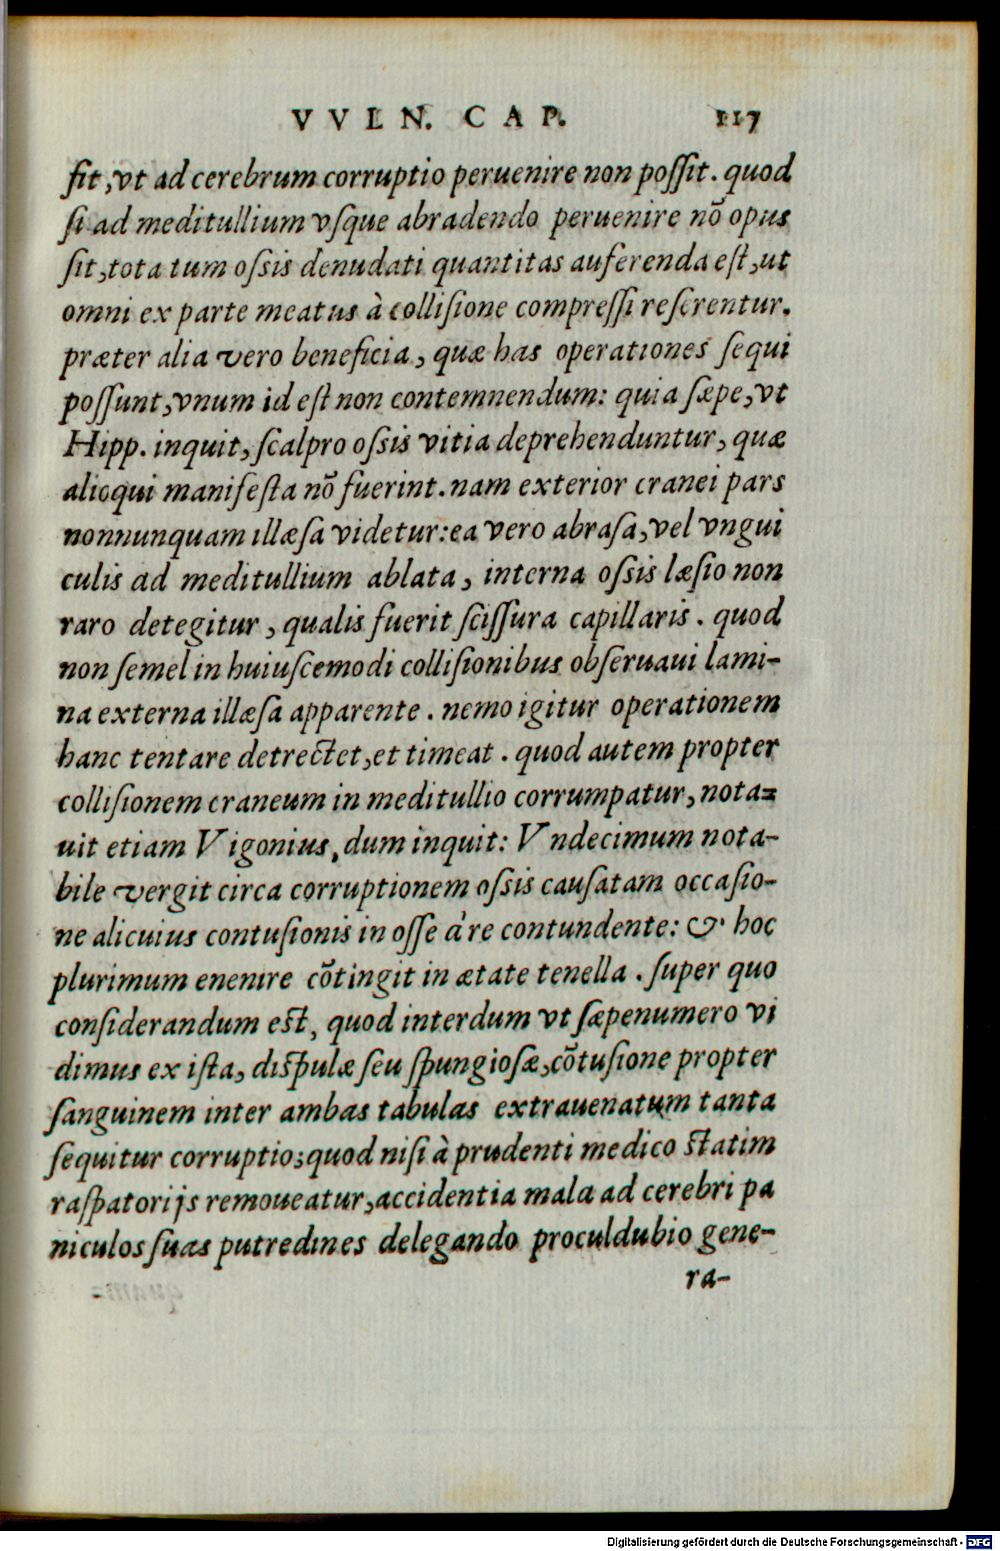 VVLN. CAP. 117
ſit, vt ad cerebrum corruptio peruenire non poſſit. quod
ſi ad meditullium vſque abradendo peruenire nõ opus
ſit, tota tum oſsis denudati quantitas auferenda eſt, ut
omni ex parte meatus à colliſione compreſſi reſerentur.
præter alia vero beneficia, quæ has operationes ſequi
poſſunt, vnum id eſt non contemnendum: quia ſæpe, vt
Hipp. inquit, ſcalpro oſsis vitia deprehenduntur, quæ
alioqui manifeſta nõ fuerint. nam exterior cranei pars
nonnunquam illæſa videtur: ea vero abraſa, vel vngui
culis ad meditullium ablata, interna oſsis læſio non
raro detegitur, qualis fuerit ſciſſura capillaris. quod
non ſemel in huiuſcemodi colliſionibus obſeruaui lami-
na externa illæſa apparente. nemo igitur operationem
hanc tentare detrectet, et timeat. quod autem propter
colliſionem craneum in meditullio corrumpatur, nota=
uit etiam Vigonius, dum inquit: Vndecimum nota-
bile vergit circa corruptionem oſsis cauſatam occaſio-
ne alicuius contuſionis in oſſe à re contundente: & hoc
plurimum enenire cõtingit in ætate tenella. ſuper quo
conſiderandum eſt, quod interdum vt ſæpenumero vi
dimus ex iſta, diſpulæ ſeu ſpungioſæ, cõtuſione propter
ſanguinem inter ambas tabulas extrauenatum tanta
ſequitur corruptio; quod niſi à prudenti medico ſtatim
raſpatorijs remoueatur, accidentia mala ad cerebri pa
niculos ſuas putredines delegando proculdubio gene-
ra-
Digitalisierung gefördert durch die Deutsche Forschungsgemeinschaft - DFG